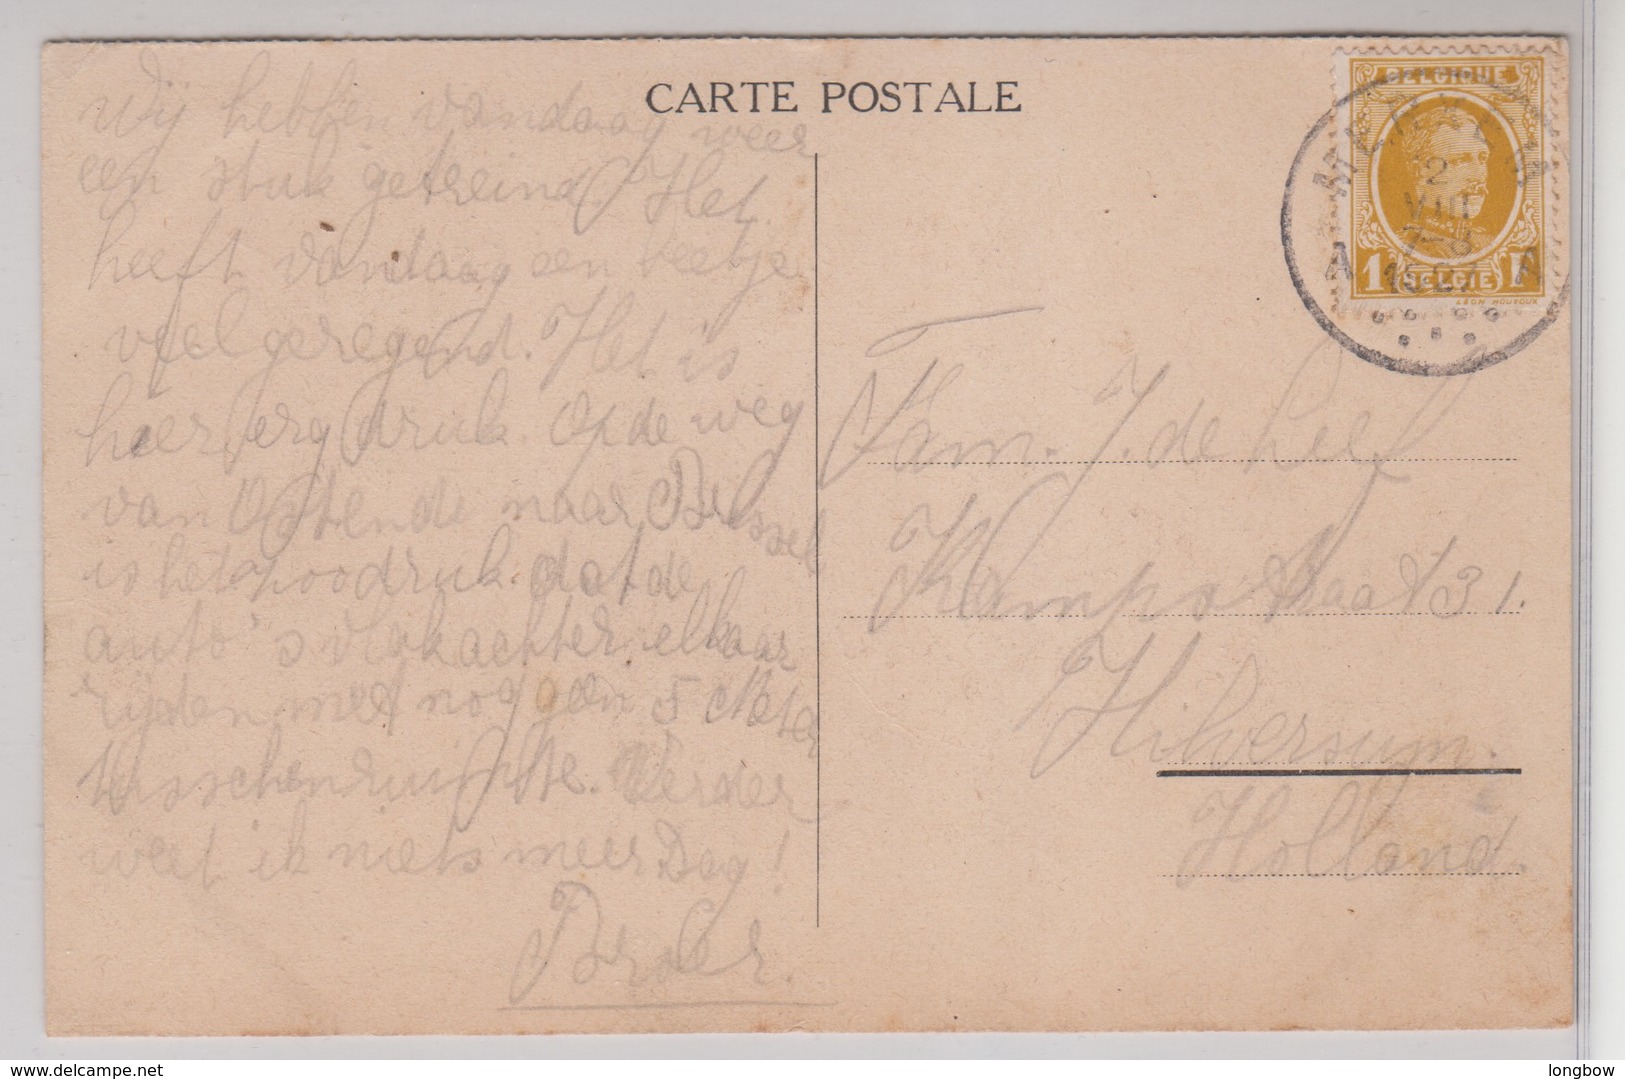 CARTE POSTALE
Wij hebben vandaag weer
een stuk getreind. Het
heeft vandaag een beetje
veel geregend. Het is
hier erg druk. Op de weg
van Ostende naar Brussel
is het zoo druk dat de
auto's vlak achter elkaar
rijden met nog geen 5 Meter
tusschenruimte. Verder
weet ik niets meer Dag!
Broer.
BELGIQUE
1 BELGIE 1F
2
VIII
7-8
1927
A A
Fam. J. de Leef
Kampstraat 31.
Hilversum.
Holland.
delcampe.net
longbow